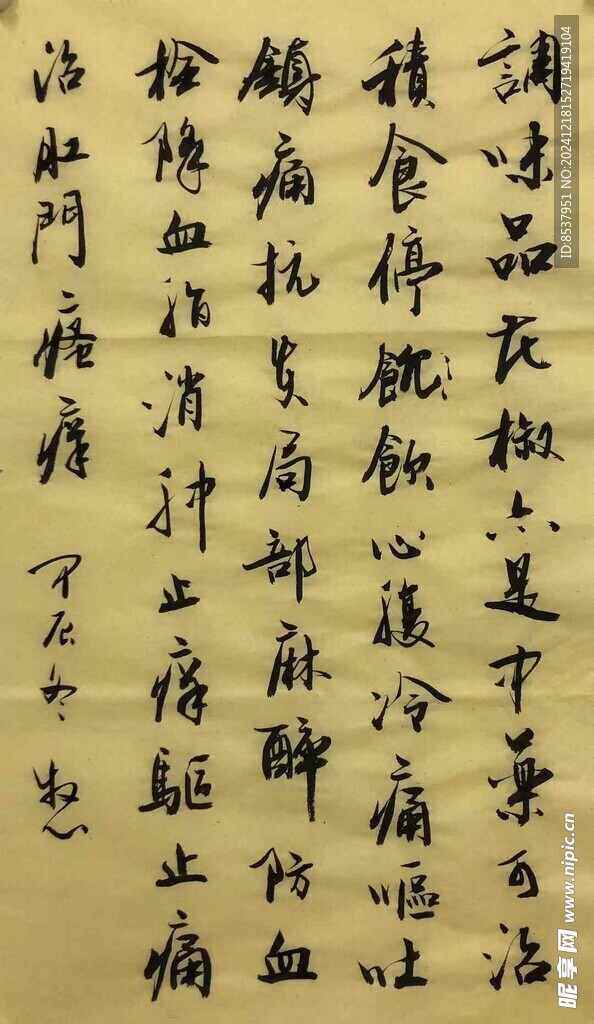 調味品花椒亦是中藥可治
積食停飲心腹冷痛嘔吐
鎮痛抗炎局部麻醉防血
栓降血脂消肿止痒驅止痛
治肛門瘙痒 甲辰冬 牧心
ID:8537951 NO:20241218152719419104
昵享网 www.nipic.cn